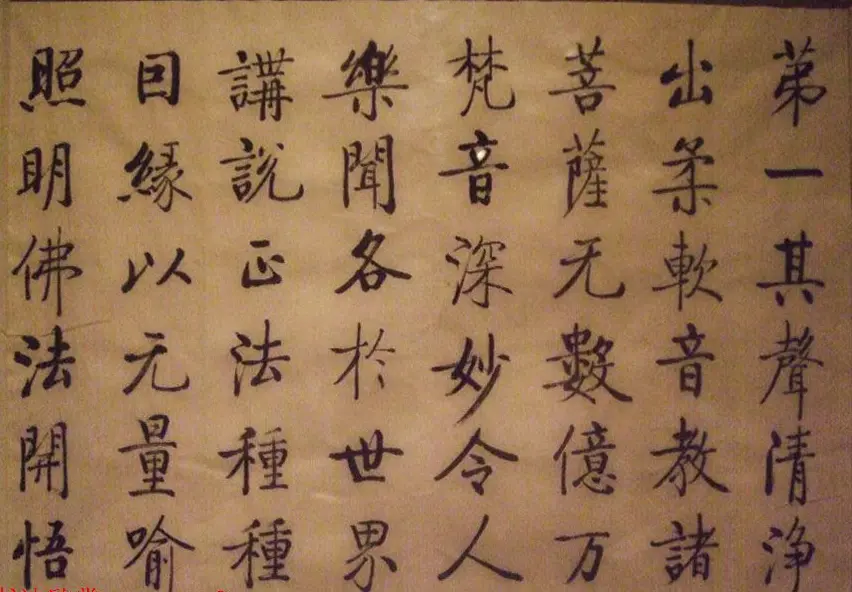 苐一其聲清浄
出柔軟音教諸
菩薩无數億万
梵音深妙令人
樂聞各於世界
講說正法種種
囙緣以无量喻
照明佛法開悟